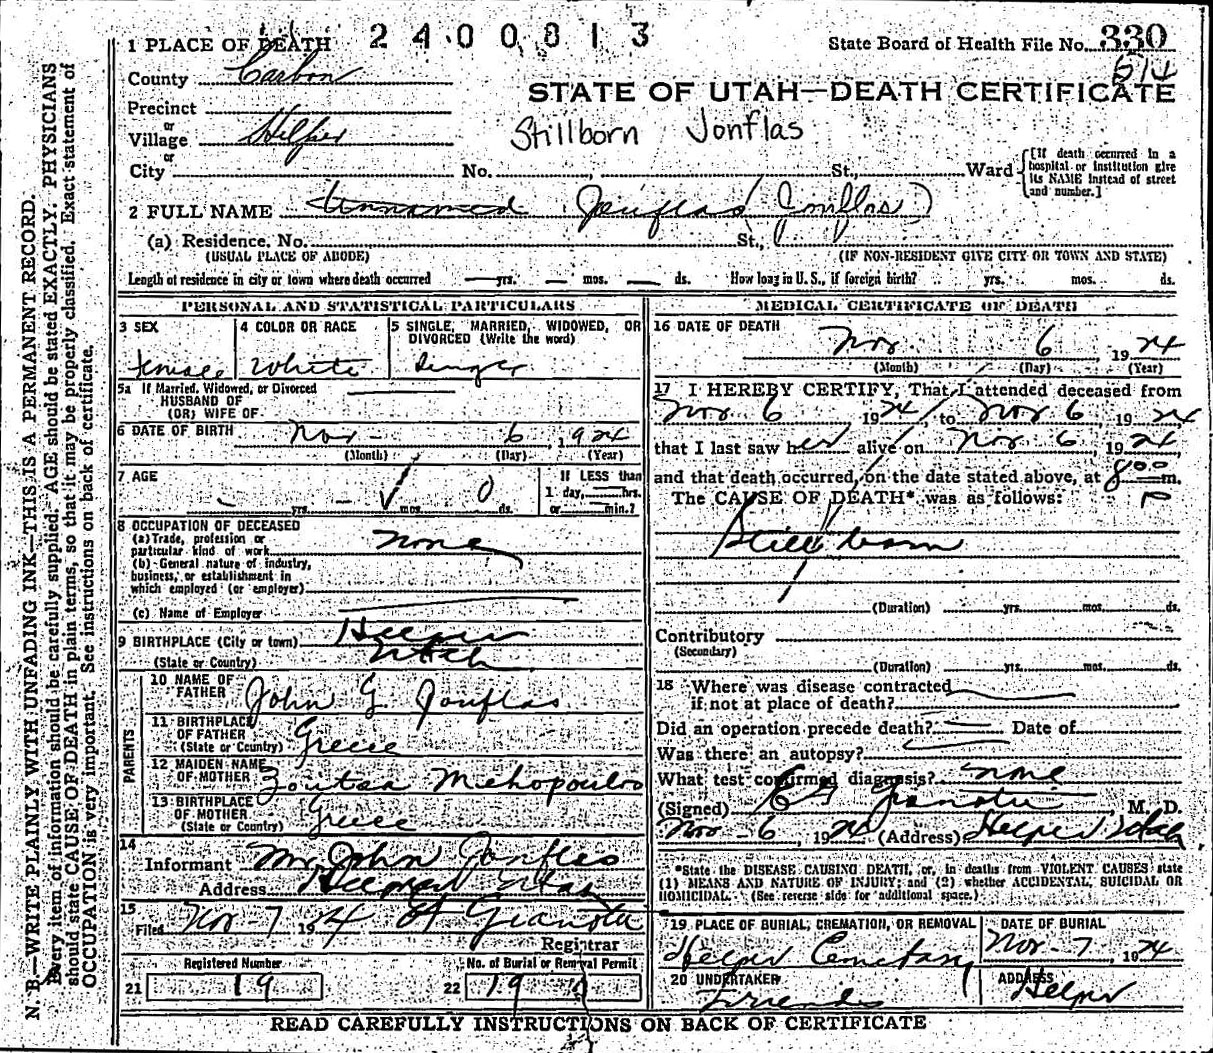 1 PLACE OF DEATH 2400813 State Board of Health File No. 330
514
County Carbon
STATE OF UTAH—DEATH CERTIFICATE
Precinct
or
Village Helper
Stillborn Jonflas
or
City No. St., Ward
[If death occurred in a hospital or institution give its NAME instead of street and number.]
2 FULL NAME Unnamed Jouflas (Jonflas)
(a) Residence, No. St.,
(USUAL PLACE OF ABODE) (IF NON-RESIDENT GIVE CITY OR TOWN AND STATE)
Length of residence in city or town where death occurred yrs. mos. ds. How long in U. S., if foreign birth? yrs. mos. ds.
PERSONAL AND STATISTICAL PARTICULARS
3 SEX
female
4 COLOR OR RACE
White
5 SINGLE, MARRIED, WIDOWED, OR DIVORCED (Write the word)
Single
5a If Married, Widowed, or Divorced
HUSBAND OF
(OR) WIFE OF
6 DATE OF BIRTH Nov 6, 1924
(Month) (Day) (Year)
7 AGE
yrs. mos. 0 ds.
If LESS than
1 day, hrs.
or min.?
8 OCCUPATION OF DECEASED
(a) Trade, profession or
particular kind of work None
(b) General nature of industry,
business, or establishment in
which employed (or employer)
(c) Name of Employer
9 BIRTHPLACE (City or town) Helper
(State or Country) Utah
PARENTS
10 NAME OF
FATHER John G Jouflas
11 BIRTHPLACE
OF FATHER
(State or Country) Greece
12 MAIDEN NAME
OF MOTHER Zoutsa Mehopoulos
13 BIRTHPLACE
OF MOTHER
(State or Country) Greece
14
Informant Mr John Jouflas
Address Helper Utah
15
Filed Nov 7 1924 Gianotti
Registrar
Registered Number
21 19
No. of Burial or Removal Permit
22 19
MEDICAL CERTIFICATE OF DEATH
16 DATE OF DEATH
Nov. 6, 1924
(Month) (Day) (Year)
17 I HEREBY CERTIFY, That I attended deceased from
Nov. 6 1924, to Nov 6, 1924
that I last saw her alive on Nov 6, 1924
and that death occurred, on the date stated above, at 8 00 m.
The CAUSE OF DEATH* was as follows: P
Still born
(Duration) yrs. mos. ds.
Contributory
(Secondary)
(Duration) yrs. mos. ds.
18 Where was disease contracted
if not at place of death?
Did an operation precede death? Date of
Was there an autopsy?
What test confirmed diagnosis? none
(Signed) Gianotti M. D.
Nov-6, 1924 (Address) Helper Utah
*State the DISEASE CAUSING DEATH, or, in deaths from VIOLENT CAUSES state
(1) MEANS AND NATURE OF INJURY; and (2) whether ACCIDENTAL, SUICIDAL OR
HOMICIDAL. (See reverse side for additional space.)
19 PLACE OF BURIAL, CREMATION, OR REMOVAL
Helper Cemetary
DATE OF BURIAL
Nov-7, 1924
20 UNDERTAKER
Friends
ADDRESS
Helper
READ CAREFULLY INSTRUCTIONS ON BACK OF CERTIFICATE
N. B.—WRITE PLAINLY, WITH UNFADING INK—THIS IS A PERMANENT RECORD.
Every item of information should be carefully supplied. AGE should be stated EXACTLY. PHYSICIANS
should state CAUSE OF DEATH in plain terms, so that it may be properly classified. Exact statement of
OCCUPATION is very important. See instructions on back of certificate.